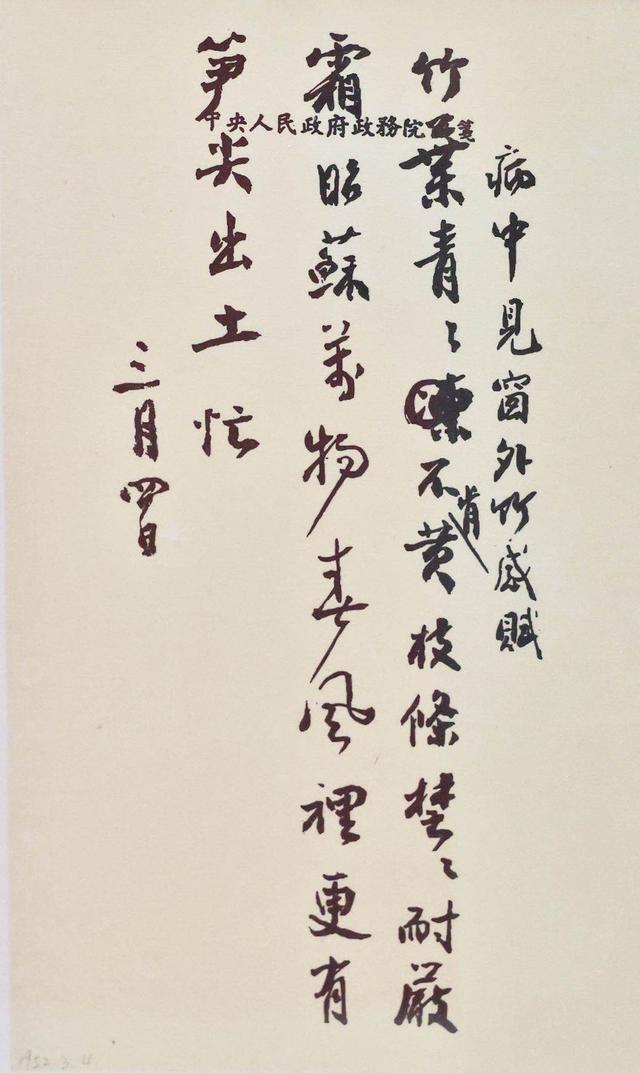 病中見窗外竹感賦
竹葉青〻凍不肯黄枝條楚〻耐嚴
霜昭蘇萬物春風裡更有
笋尖出土忙
三月四日
中央人民政府政務院箋
1952.3.4